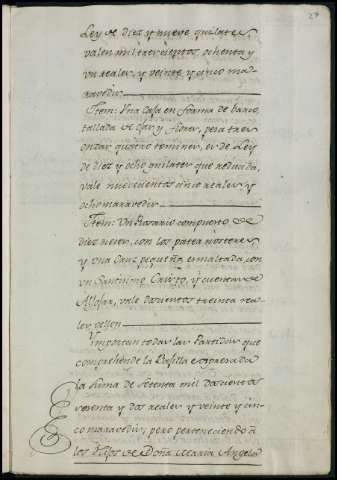 27
Ley de diez y nueve quilates,
valen mil trescientos, ochenta y
un reales, y veinte y cinco ma-
ravedis
Item: Una Caja en forma de barco,
tallada de y flores, pesa tres
onzas quatro tomines, es de Ley
de diez y ocho quilates que reducida,
vale nuevecientos cinco reales, y
ocho maravedis
Item: Un Rosario compuesto de
diez dieses, con los paternosteres,
y una Cruz pequeña esmaltada, con
un Santisimo Cristo, y cuentas de
Aljofar, vale doscientos treinta rea-
les vellon
Ymportan todas las Partidas que
comprehende la Bajilla expresada
la suma de setenta mil doscientos
sesenta y dos reales y veinte y cin-
co maravedis, pero perteneciendo à
los Hijos de Doña Maria Angela